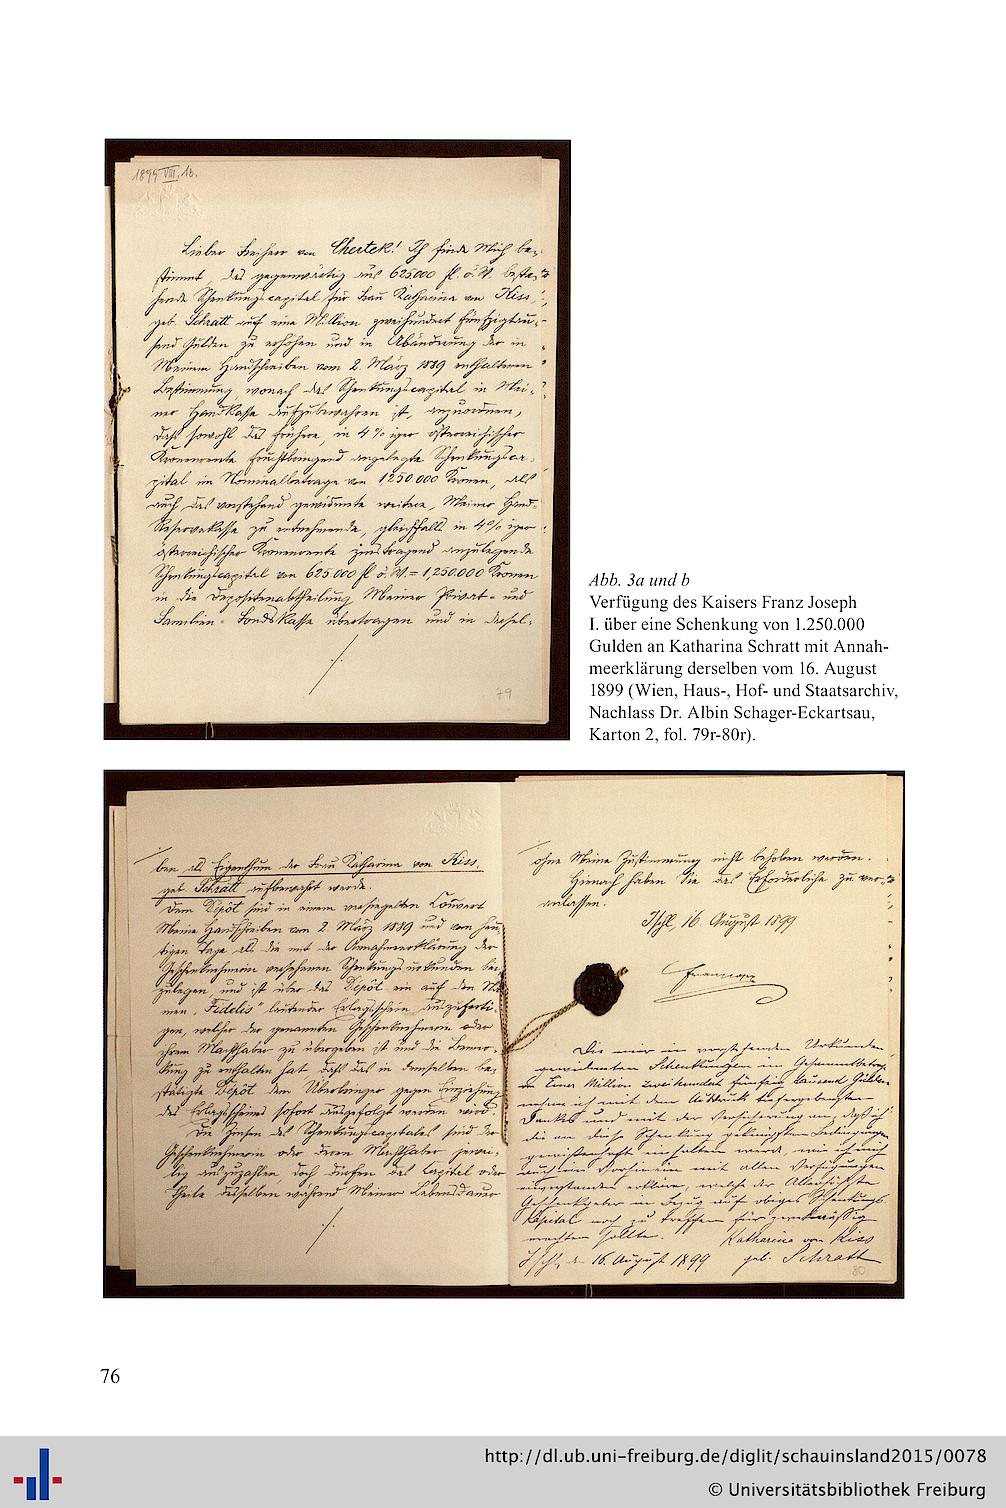 1899 VIII. 16.
Lieber Freiherr von Chertek! Ich finde Mich be-
stimmt, das gegenwärtig aus 625.000 fl. ö. W. beste-
hende Schenkungscapital für Frau Katharina von Kiss,
geb. Schratt auf eine Million zweihundert fünfzigtau-
send Gulden zu erhöhen und in Abänderung der in
Meinem Handschreiben vom 2. März 1889 enthaltenen
Bestimmung, wonach das Schenkungscapital in Mei-
ner Handkasse aufzubewahren ist, anzuordnen,
daß sowohl das frühere, in 4% iger österreichischer
Kronenrente fruchtbringend angelegte Schenkungsca-
pital im Nominalbetrage von 1250.000 Kronen, als
auch das vorstehend gewidmete weitere, Meiner Hand-
Reservekasse zu entnehmende, gleichfalls in 4% iger
österreichischer Kronenrente zinstragend anzulegende
Schenkungscapital von 625.000 fl ö. W. = 1,250.000 Kronen
in die Depositenabtheilung Meiner Privat- und
Familien-Fonds Kasse übertragen und in dersel-
./.
79
Abb. 3a und b
Verfügung des Kaisers Franz Joseph
I. über eine Schenkung von 1.250.000
Gulden an Katharina Schratt mit Annah-
meerklärung derselben vom 16. August
1899 (Wien, Haus-, Hof- und Staatsarchiv,
Nachlass Dr. Albin Schager-Eckartsau,
Karton 2, fol. 79r-80r).
ben als Eigenthum der Frau Katharina von Kiss,
geb. Schratt aufbewahrt werde.
Dem Depôt sind in einem versiegelten Couvert
Meine Handschreiben vom 2. März 1889 und vom heu-
tigen Tage als die mit der Annahmeerklärung der
Geschenknehmerin versehenen Schenkungsurkunden bei-
zulegen, und ist über das Depôt ein auf den Na-
men „Fidelis" lautender Erlagsschein auszuferti-
gen, welcher der genannten Geschenknehmerin oder
ihrem Machthaber zu übergeben ist und die Bemer-
kung zu enthalten hat, daß das in demselben be-
stätigte Depôt dem Überbringer gegen Einziehung
des Erlagsscheines sofort ausgefolgt werden wird.
Die Zinsen des Schenkungscapitales sind der
Geschenknehmerin oder deren Machthaber jewei-
lig auszuzahlen, doch dürfen das Capital oder
Theile desselben während Meiner Lebensdauer
./.
ohne Meine Zustimmung nicht behoben werden.
Hienach haben Sie das Erforderliche zu ver-
anlassen.
Ischl, 16 August 1899
Die mir in vorstehender Urkunde
gewidmeten Schenkungen im Gesammtbetrage
Einer Million zweihundert fünfzig tausend Gulden
nehme ich mit dem Ausdruck tiefergebensten
Dankes und mit der Versicherung an, daß ich
die an diese Schenkung geknüpften Bedingungen
gewissenhaft einhalten werde, wie ich mich
auch im Vorhinein mit allen Verfügungen
einverstanden erkläre, welche der Allerhöchste
Geschenkgeber in Bezug auf obiges Schenkungs-
kapital noch zu treffen für zweckmässig
erachten sollte. Katharina von Kiss
Ischl, den 16. August 1899 geb. Schratt
80
76
http://dl.ub.uni-freiburg.de/diglit/schauinsland2015/0078
© Universitätsbibliothek Freiburg